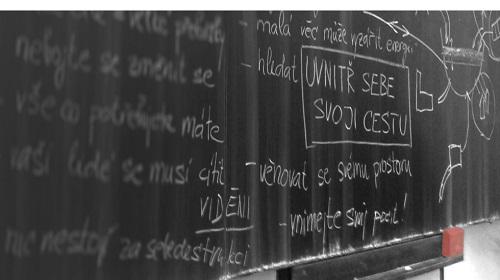 nebojte se změnit se
- vše co potřebujete máte
vaši lidé se musí cítit
VIDĚNI
nic nestojí za
- malá věc může vyzářit energii
- hledat UVNITŘ SEBE
SVOJI CESTU
- věnovat se svému prostoru
- vnímejte svůj pocit!